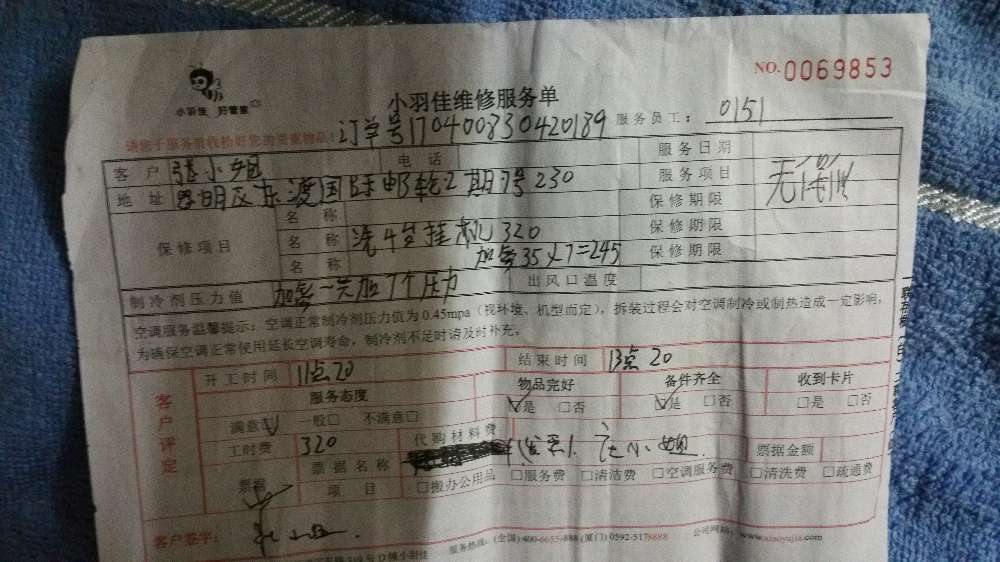 小羽佳 好管家
NO.0069853
小羽佳维修服务单
请您于服务前收拾好您的贵重物品
订单号170400830420189 服务员工: 0151
客户 张小姐 电话 服务日期
地址 思明区东渡国际邮轮2期7号230 服务项目
名称 保修期限
保修项目 名称 洗4台挂机320 保修期限
名称 加氟35×7=245 保修期限
制冷剂压力值 加氟一共加7个压力 出风口温度
空调服务温馨提示:空调正常制冷剂压力值为0.45mpa(视环境、机型而定),拆装过程会对空调制冷或制热造成一定影响,
为确保空调正常使用延长空调寿命,制冷剂不足时请及时补充。
客户评定
开工时间 11点20 结束时间 13点20
服务态度 物品完好 备件齐全 收到卡片
满意☑ 一般□ 不满意□ ☑是 □否 ☑是 □否 □是 □否
工时费 320 代购材料费
票据 票据名称 小姐 票据金额
项目 □搬办公用品 □服务费 □清洁费 □空调服务费 □清洗费 □疏通费
客户签字:
服务热线:(全国)400-6655-888 (厦门)0592-5178888 公司网址: www.xiaoyujia.com